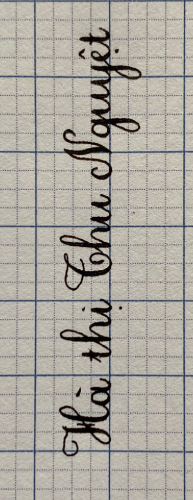 Hà thị Thu Nguyệt